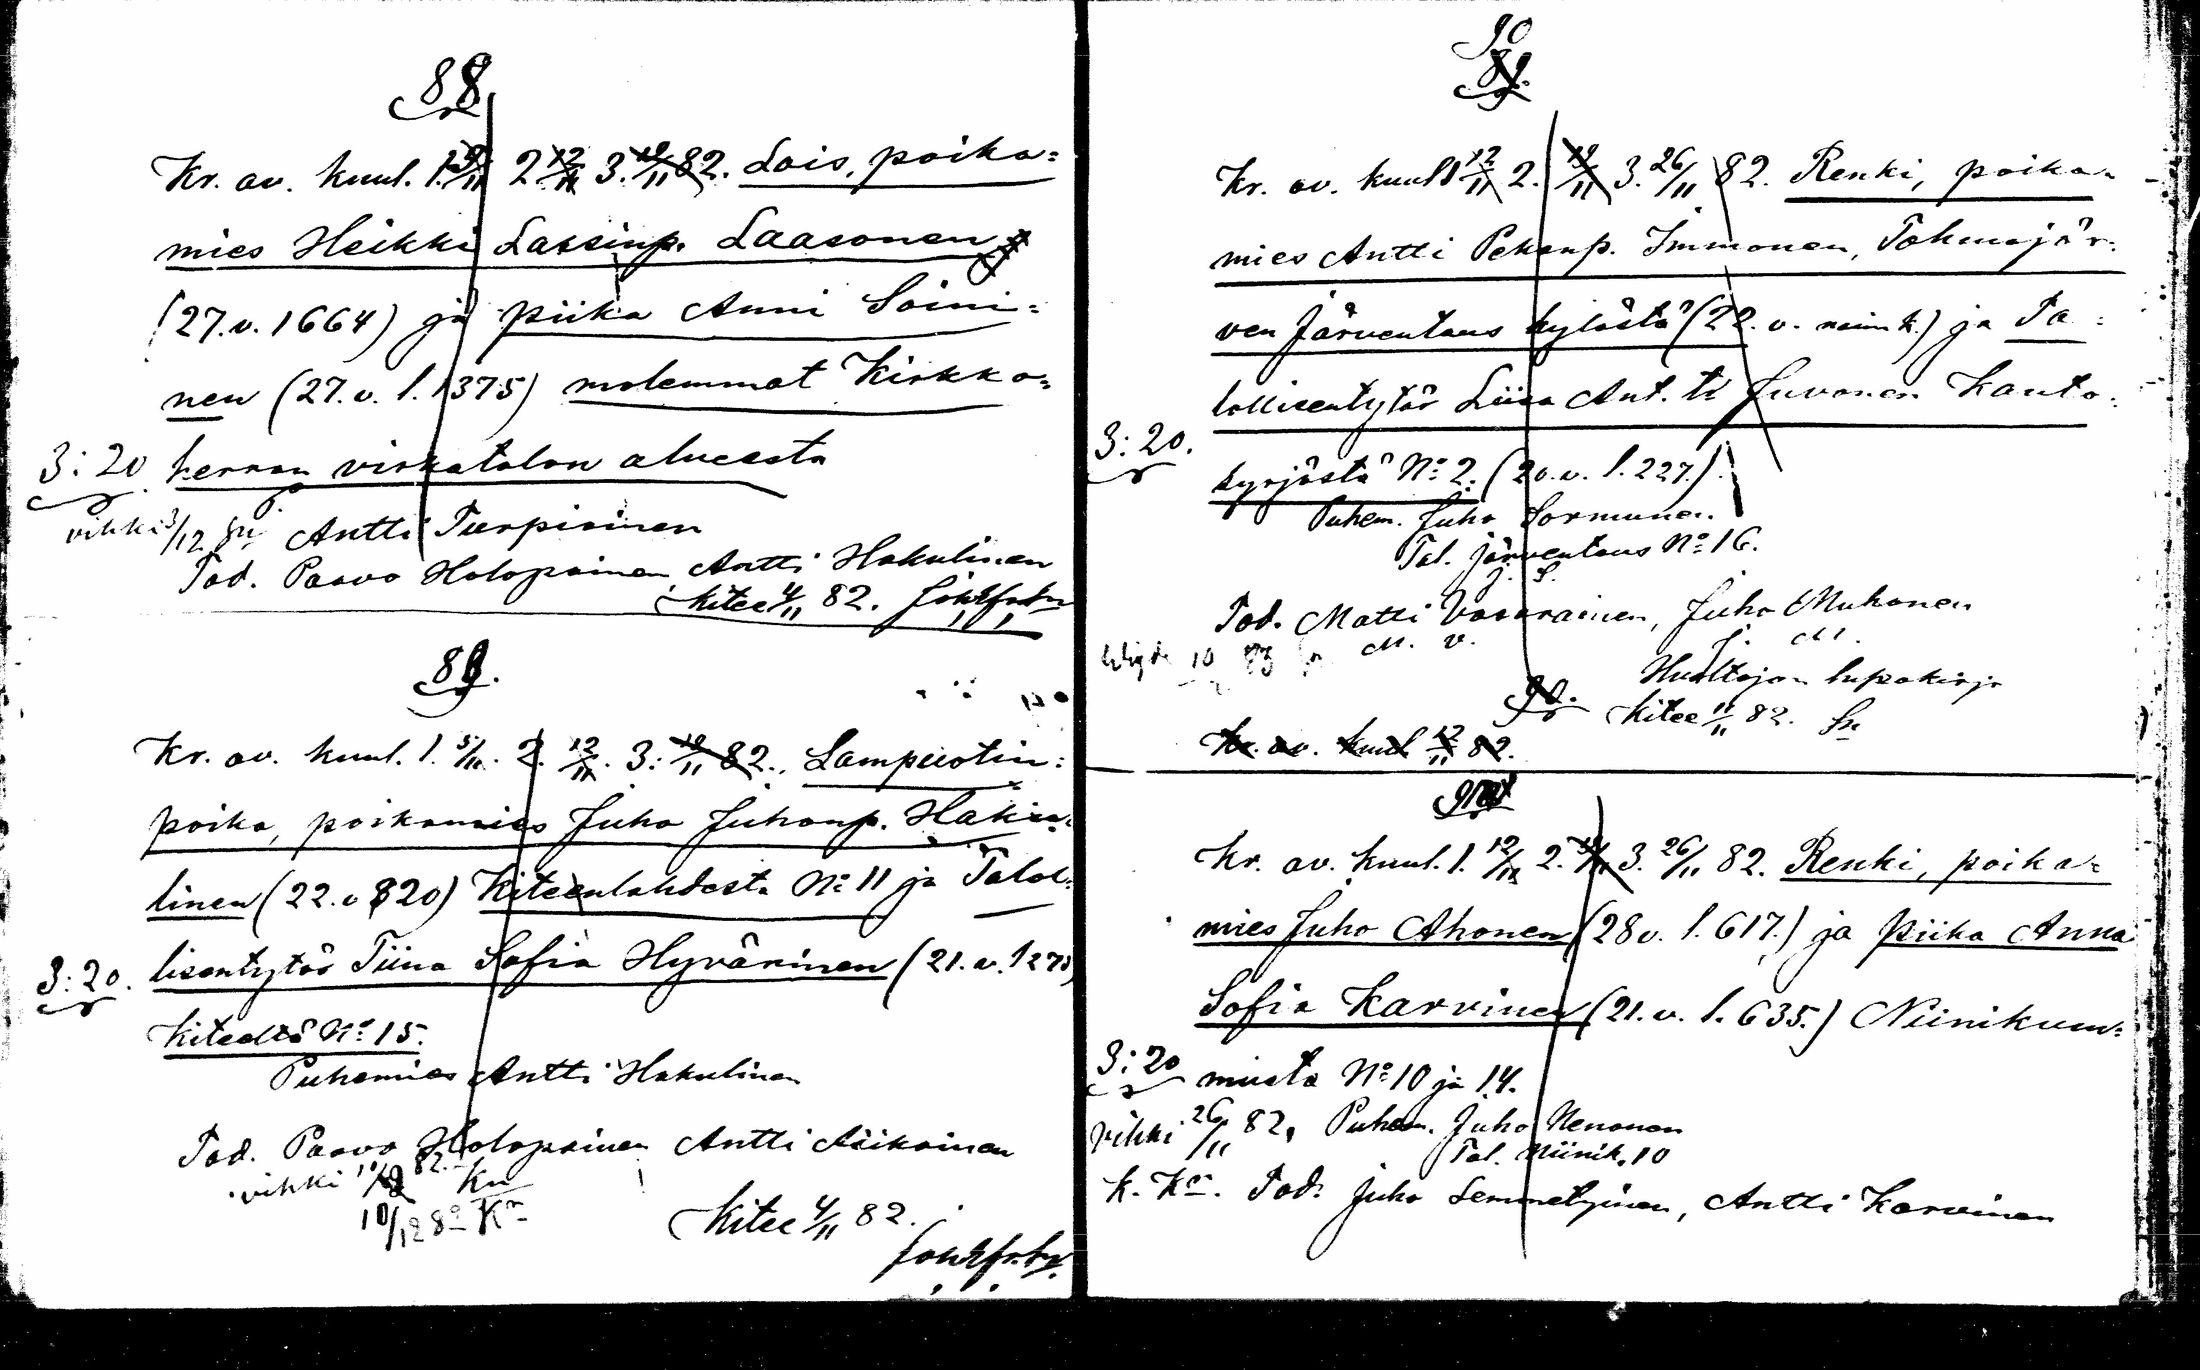 88.
Kr. av. kuul. 1. 5/11 2. 12/11 3. 19/11 82. Lois, poika=
mies Heikki Lassinp. Laasonen
(27.v. 1664) ja piika Anni Soini=
nen (27.v. l. 1375) molemmat Kirkko=
3:20 herran virkatalon alueesta
vihki 3/12 Antti Turpiainen
Tod. Paavo Holopainen Antti Hakulinen
Kitee 4/11 82.
89.
Kr. av. kuul. 1. 5/11. 2. 12/11. 3: 19/11 82. Lampuotin=
poika, poikamies Juho Juhonp. Haku=
linen (22.v 820) Kiteenlahdesta No 11 ja Talol=
3:20. lisentytär Tiina Sofia Hyvärinen (21.v. 1275)
Kiteeltä No 15.
Puhemies Antti Hakulinen
Tod. Paavo Holopainen Antti Äikäinen
vihki 10/12 82. Kn
10/12 82 Kn
Kitee 4/11 82.
90
89.
Kr. av. kuul 12/11 2. 19/11 3. 26/11 82. Renki, poika=
mies Antti Pekanp. Immonen, Tohmajär=
ven Järventaus kylästä (22. v. naim k.) ja Ta=
lollisentytär Liisa Ant. tr Juvonen Kanto=
3:20.
kyrjästä No 2. (20.v. l. 227.)
Puhem. Juho Sormunen.
Tal. Järventaus No 16.
J. S.
Tod. Matti Vasarainen, Juho Muhonen
M. V. J. M.
Huoltajan lupakirja
90. Kitee 11/11 82.
Kr. av. kuul 12/11 82.
Kr. av. kuul. 1. 12/11 2. 19/11 3. 26/11 82. Renki, poika=
mies Juho Ahonen (28 v. l. 617.) ja piika Anna
Sofia Karvinen (21. v. l. 635.) Niinikum=
3:20 musta No 10 ja 14.
vihki 26/11 82, Puhem. Juho Nenonen
Tal. Niinik. 10
K. Kn. Tod. Juho Lemmetyinen, Antti Karvinen